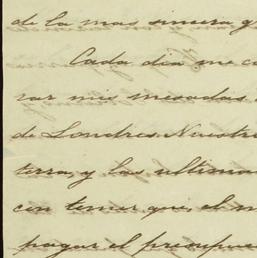 de la mas sincera g
Cada dia me co
rar mis mesadas
de Londres. Nuestro
terra, y las ultima
con temer que, el m
pagar el presupue